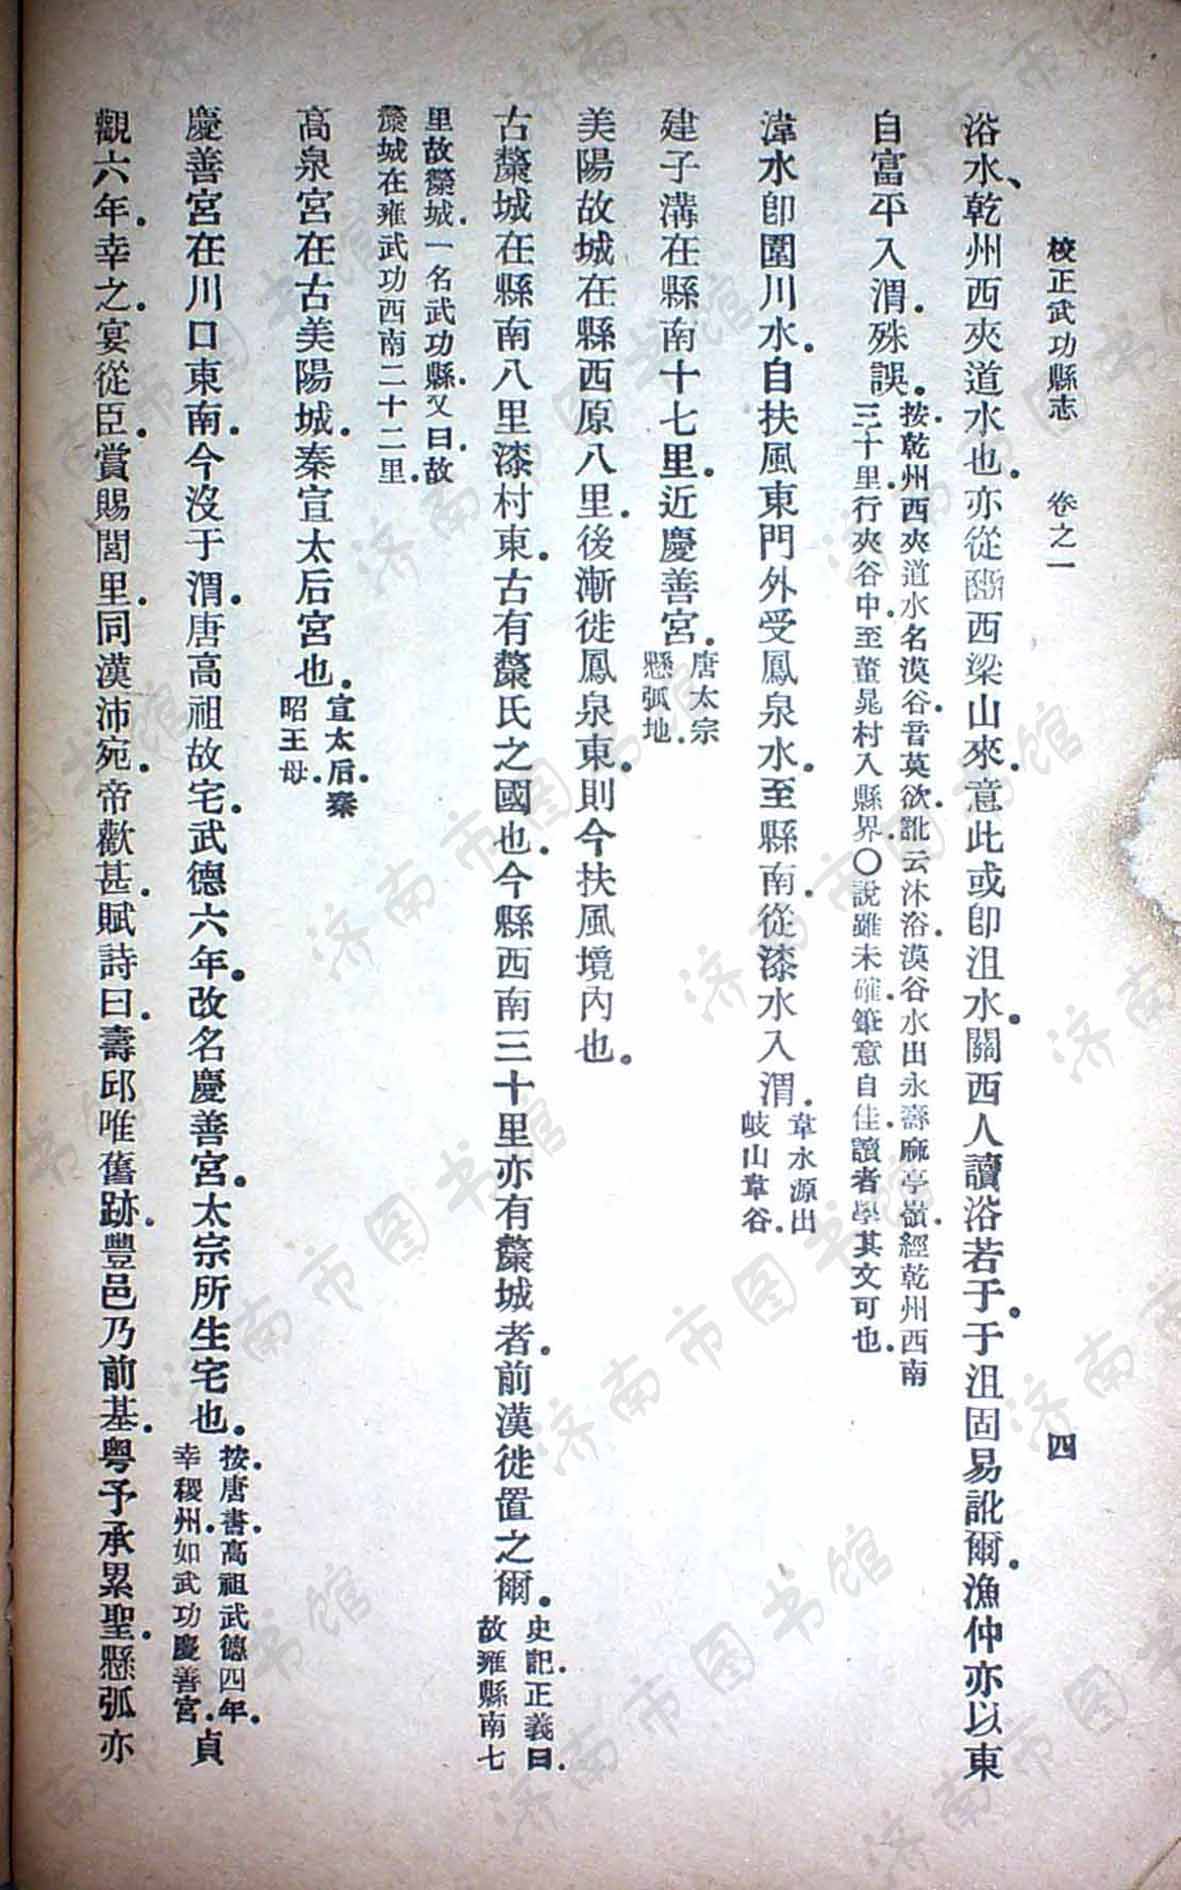 校正武功縣志　卷之一　四
浴水、乾州西夾道水也．亦從豳西梁山來．意此或卽沮水．關西人讀浴若于．于沮固易訛爾．漁仲亦以東
自富平入渭．殊誤．
按乾州西夾道水名漠谷．音莫．欲訛云沐浴．漠谷水出永壽麻亭嶺．經乾州西南
三十里．行夾谷中．至董晁村入縣界．○說雖未確．筆意自佳．讀者學其文可也．
湋水卽圍川水．自扶風東門外受鳳泉水．至縣南．從漆水入渭．
韋水源出
岐山韋谷．
建子溝在縣南十七里．近慶善宮．
唐太宗
懸弧地．
美陽故城在縣西原八里．後漸徙鳳泉東．則今扶風境內也．
古斄城在縣南八里漆村東．古有斄氏之國也．今縣西南三十里亦有斄城者．前漢徙置之爾．
史記．正義曰．
故雍縣南七
里故斄城．一名武功縣．又曰．故
斄城在雍武功西南二十二里．
高泉宮在古美陽城．秦宣太后宮也．
宣太后．秦
昭王母．
慶善宮在川口東南．今沒于渭．唐高祖故宅．武德六年．改名慶善宮．太宗所生宅也．
按．唐書．高祖武德四年．
幸稷州．如武功慶善宮．
貞
觀六年．幸之．宴從臣．賞賜閭里．同漢沛宛．帝歡甚．賦詩曰．壽邱唯舊跡．豐邑乃前基．粵予承累聖．懸弧亦
济南市图书馆